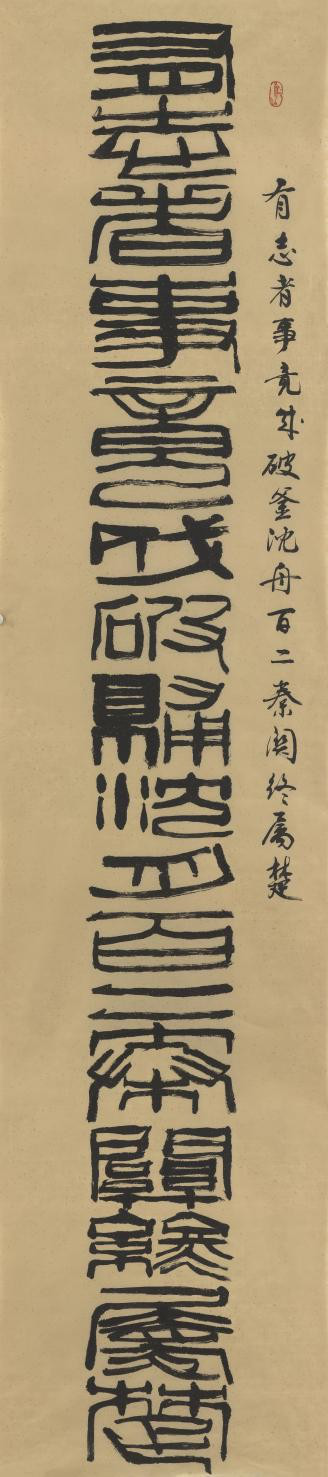 有志者事竟成破釜沈舟百二秦関终属楚
有志者事竟成破釜沈舟百二秦關終屬楚